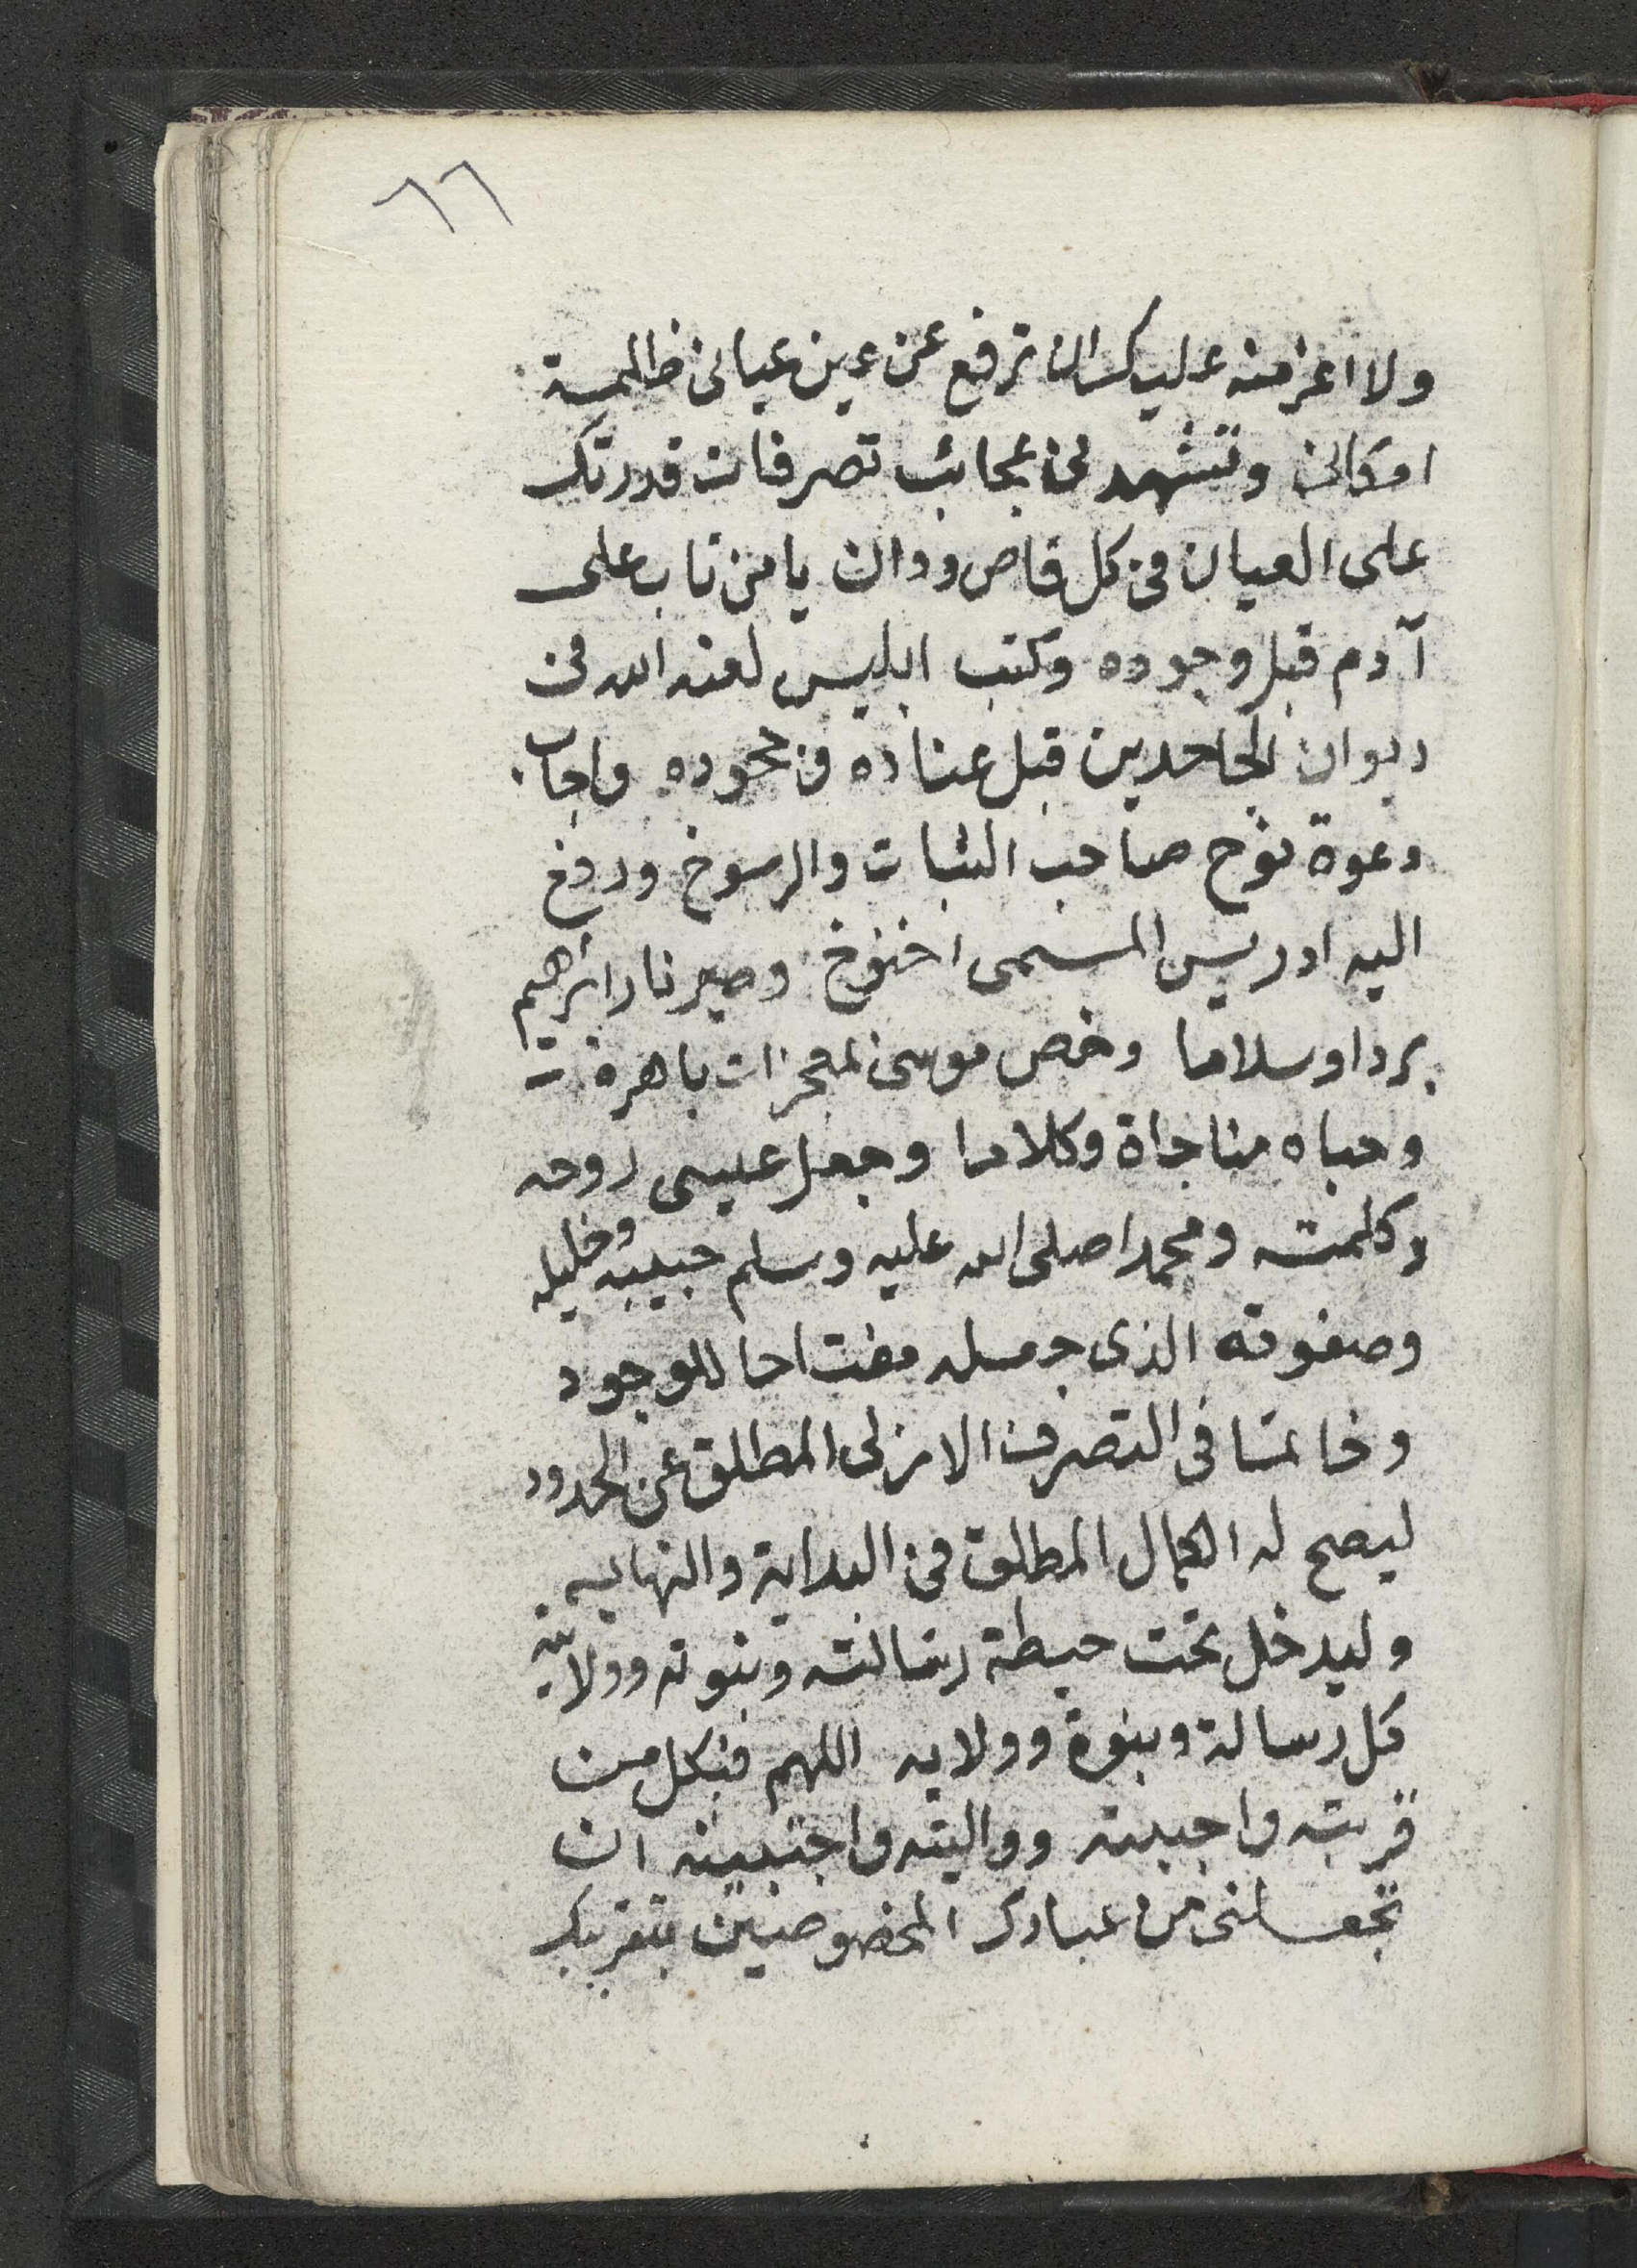 ٦٦
ولا اعز منه عليك ان ترفع عن عين عيانى ظلمة
امكانى وتشهدنى عجائب تصرفات قدرتك
على العيان فى كل قاص ودان يا من تاب على
آدم قبل وجوده وكتب ابليس لعنه الله فى
ديوان الجاحدين قبل عناده فى جحوده واجاب
دعوة نوح صاحب الثبات والرسوخ ورفع
اليه ادريس المسمى اخنوخ وصير نار ابراهيم
بردا وسلاما وخص موسى بمعجزات باهرة
وحباه مناجاة وكلاما وجعل عيسى روحه
وكلمته ومحمدا صلى الله عليه وسلم حبيبه وخليله
وصفوته الذى جعله مفتاحا للوجود
وخاتما فى التصرف الازلى المطلق عن الحدود
ليصح له الكمال المطلق فى البداية والنهايه
وليدخل تحت حيطة رسالته ونبوته وولايته
كل رسالة ونبوة وولايه اللهم فبكل من
قربته واحببته وواليته واجتبيته ان
تجعلنى من عبادك المخصوصين بتقريبك